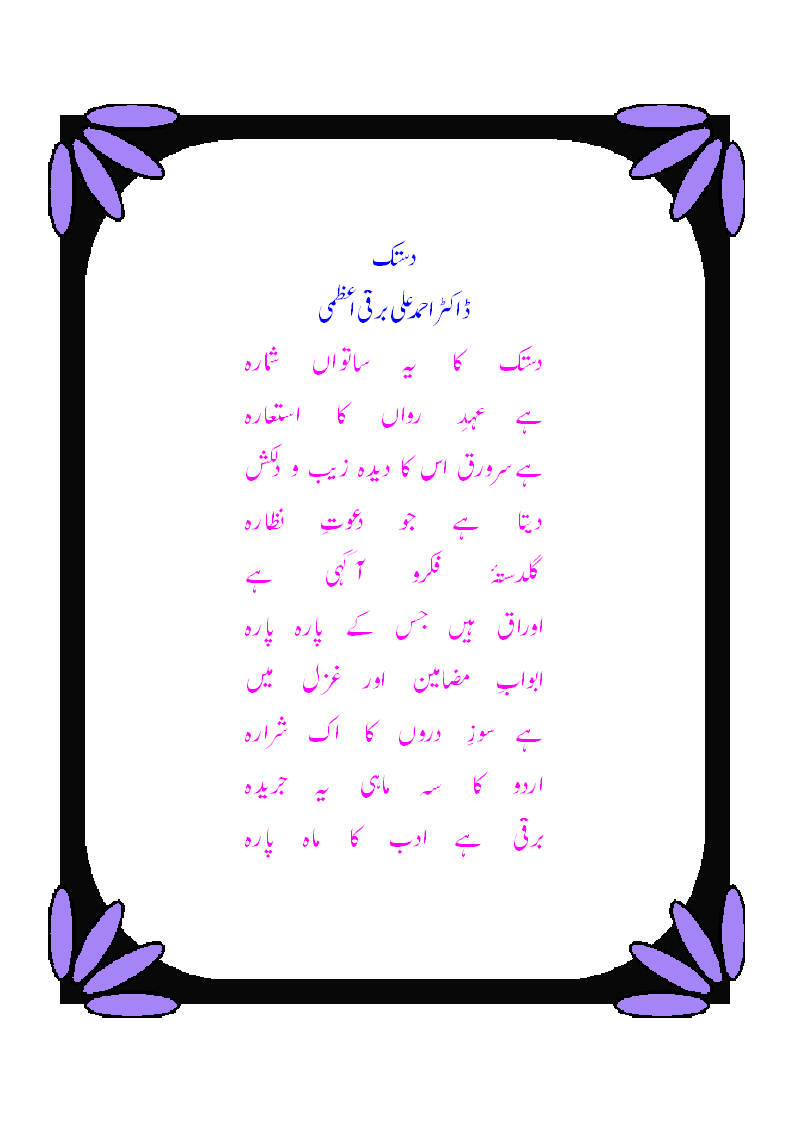 دستک
ڈاکٹر احمد علی برقی اعظمی
دستک کا یہ ساتواں شمارہ
ہے عہدِ رواں کا استعارہ
ہے سرورق اس کا دیدہ زیب و دلکش
دیتا ہے جو دعوتِ نظارہ
گلدستۂ فکرو آگہی ہے
اوراق ہیں جس کے پارہ پارہ
ابوابِ مضامین اور غزل میں
ہے سوزِ دروں کا اک شرارہ
اردو کا سہ ماہی یہ جریدہ
برقی ہے ادب کا ماہ پارہ